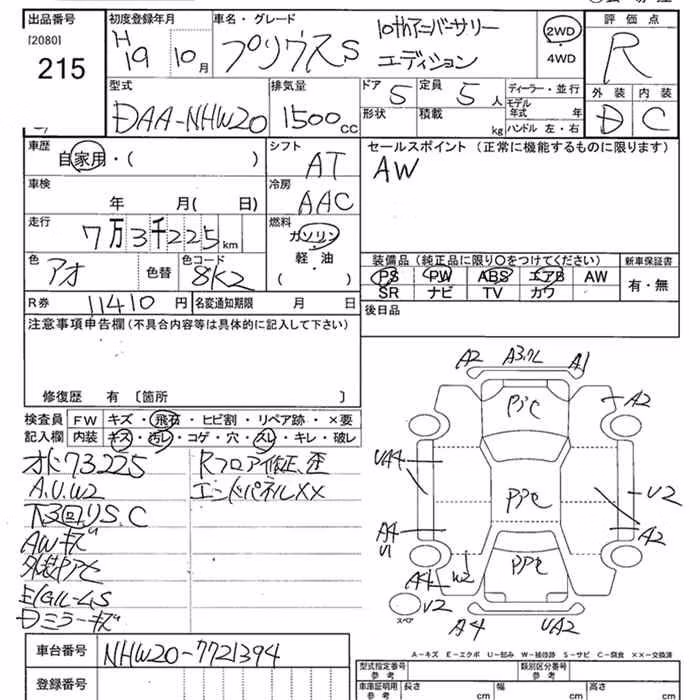 出品番号 初度登録年月 車名・グレード 評価点
[2080]
215
H19 10月 プリウスS 10thアニバーサリー エディション 2WD 4WD R
型式 排気量 ドア 定員 ディーラー・並行 外装 内装
DAA-NHW20 1500cc 5 5人
形状 積載 kg モデル年式 年 ハンドル 左・右 D C
車歴 シフト セールスポイント(正常に機能するものに限ります)
自家用・( ) AT AW
車検 冷房
年 月( 日) AAC
走行 燃料
7万3千225km ガソリン
軽・油
( )
色 色替 色コード
アオ 8K2
装備品(純正品に限り○をつけてください) 新車保証書
PS PW ABS エアB AW 有・無
SR ナビ TV カワ
R券 11410円 名変通知期限 月 日 後日品
注意事項申告欄(不具合内容等は具体的に記入して下さい)
修復歴 有〔箇所 〕
検査員 FW キズ・飛石・ヒビ割・リペア跡・×要
記入欄 内装 キズ・汚レ・コゲ・穴・スレ・キレ・破レ
オド73225
A.U.W2
下回りS.C
AWキズ
外装Pアセ
E/Gオイル-4S
Dミラーキズ
Rフロア修正、歪
エンドパネルXX
A2 A3.ワレ A1
P小C A2
UA4 PP色 U2
A4 U1 A2
A4 W2 PP色
スペア U2
A4 UA2
A-キズ E-エクボ U-凹み W-補修跡 S-サビ C-腐食 ××-交換済
車台番号 NHW20-7721394
登録番号
型式指定番号 参考 類別区分番号 参考
車庫証明用 参考 長さ cm 幅 cm 高さ cm